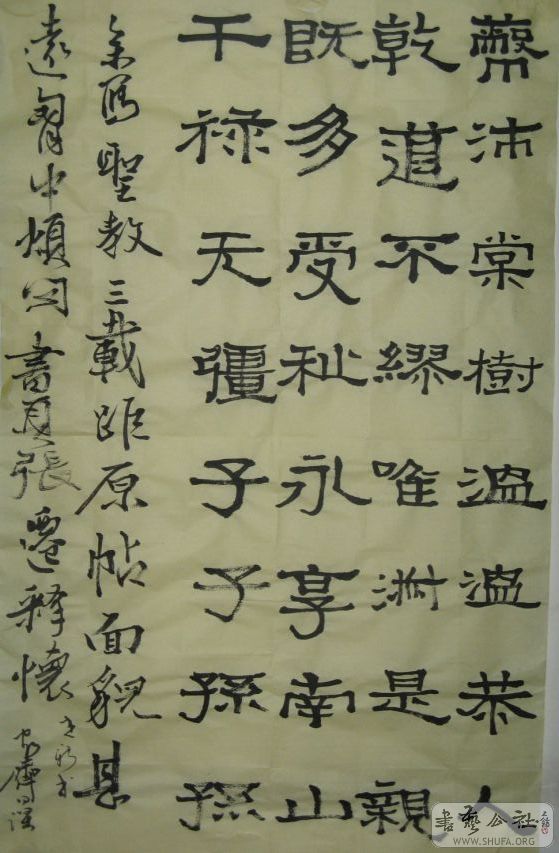 蔽沛棠樹温温恭人
乾道不繆唯淑是親
既多受祉永享南山
干禄无疆子子孫孫
余写聖教三載距原帖面貌甚
遠胷中煩闷書張遷釋懷
書藝公社
WWW.SHUFA.ORG